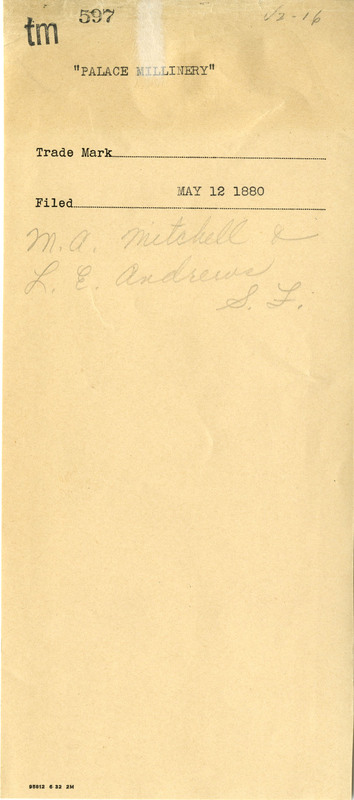 tm 597
"PALACE MILLINERY"
Trade Mark
MAY 12 1880
Filed
M. A. Mitchell &
L. E. Andrews
S. F.
95812 6 32 2M